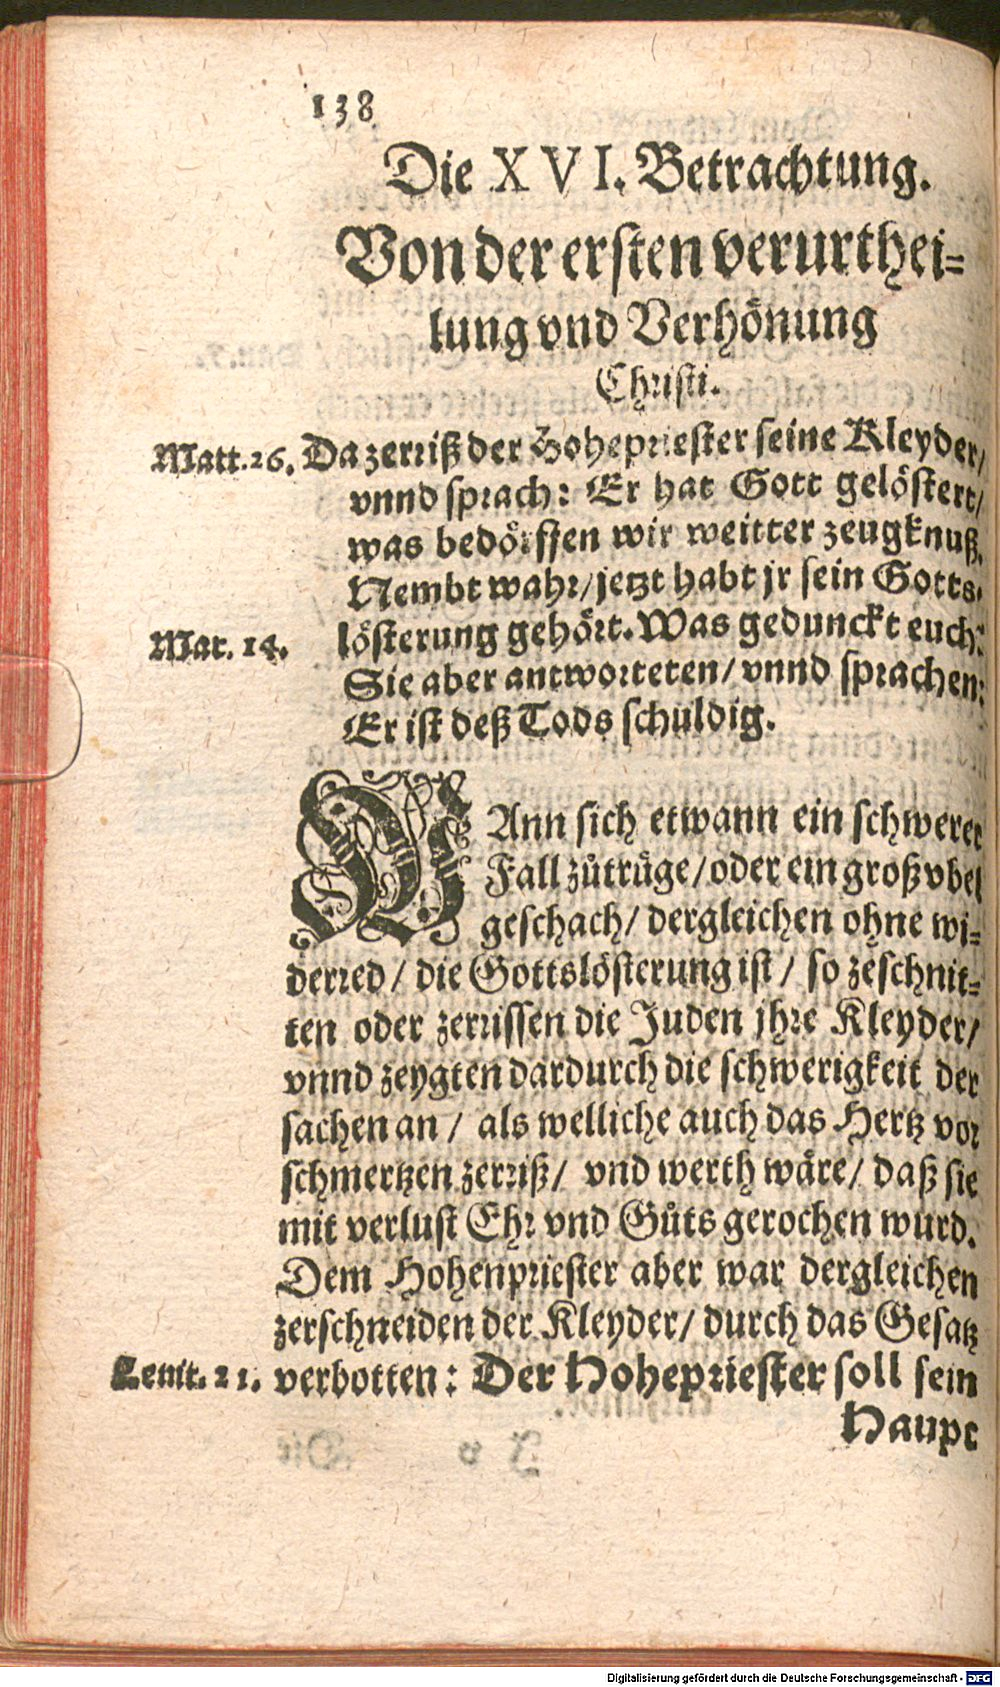 138
Die XVI. Betrachtung.
Von der ersten verurthei=
lung vnd Verhönung
Christi.
Matt. 26. Da zerriß der Hohepriester seine Kleyder/
vnnd sprach: Er hat Gott gelöstert/
was bedörffen wir weitter zeugknuß.
Nembt wahr/ jetzt habt jr sein Gotts-
Mar. 14. lösterung gehört. Was gedunckt euch?
Sie aber antworteten/ vnnd sprachen:
Er ist deß Tods schuldig.
WAnn sich etwann ein schwerer
Fall zůtrůge/ oder ein groß vbel
geschach/ dergleichen ohne wi=
derred/ die Gottslösterung ist/ so zeschnit=
ten oder zerrissen die Juden jhre Kleyder/
vnnd zeygten dardurch die schwerigkeit der
sachen an/ als welliche auch das Hertz vor
schmertzen zerriß/ vnd werth wäre/ daß sie
mit verlust Ehr vnd Gůts gerochen wurd.
Dem Hohenpriester aber war dergleichen
zerschneiden der Kleyder/ durch das Gesatz
Leuit. 21. verbotten: Der Hohepriester soll sein
Haupt
Digitalisierung gefördert durch die Deutsche Forschungsgemeinschaft - DFG